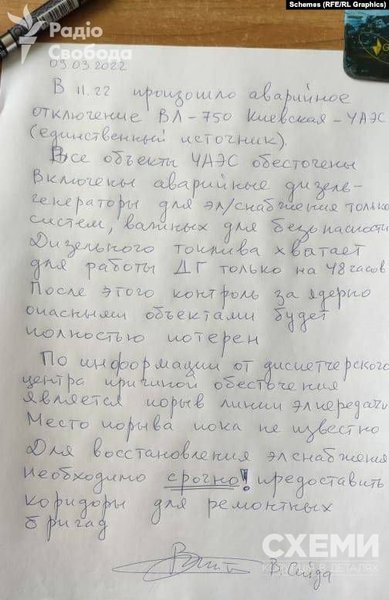 Schemes (RFE/RL Graphics)
Радіо
Свобода
09.03.2022
В 11.22 произошло аварийное
отключение ВЛ-750 Киевская-ЧАЭС
(единственный источник).
Все объекты ЧАЭС обесточены
Включены аварийные дизель-
генераторы для эл/снабжения только
систем, важных для безопасности
Дизельного топлива хватает
для работы ДГ только на 48 часов
После этого контроль за ядерно
опасными объектами будет
полностью потерян
По информации от диспетчерского
центра причиной обесточения
является порыв линии эл.передачи
Место порыва пока не известно
Для восстановления эл снабжения
необходимо срочно! предоставить
коридоры для ремонтных
бригад
СХЕМИ
КОРУПЦІЯ В ДЕТАЛЯХ